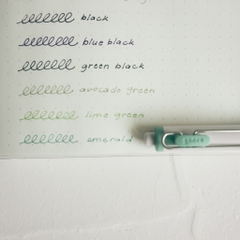 black
blue black
green black
avocado green
lime green
emerald